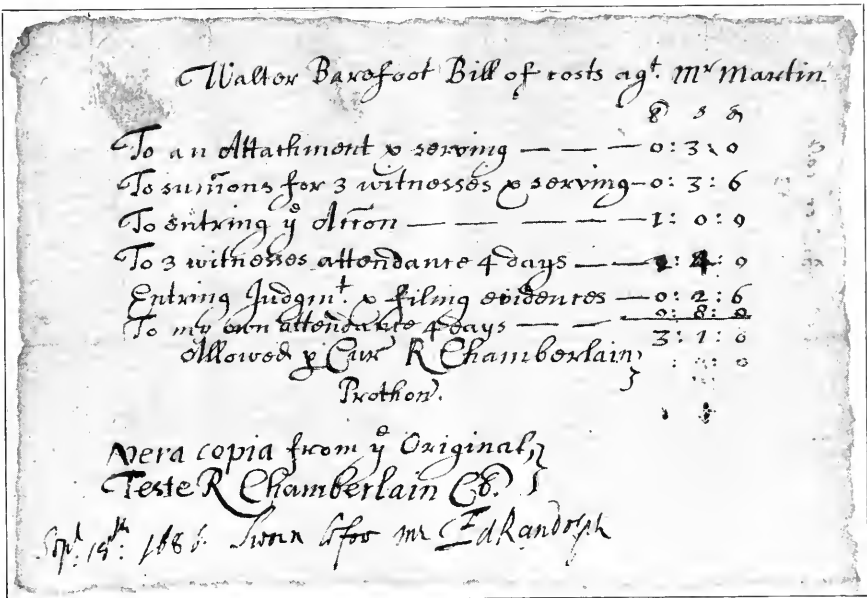 Walter Barefoot Bill of costs agt. Mr Martin
£ s d
To an Attachment & serving — — — 0: 3: 0
To sum̄ons for 3 witnesses & serving – 0: 3: 6
To entring ye Acc̄on — — — — — 1: 0: 0
To 3 witnesses attendance 4 days — — : 4: 0
Entring Judgmt. & filing evidences — 0: 2: 6
To my own attendance 4 days — — 0: 8: 0
3: 1: 0
Allowed p Cur R Chamberlain
Prothon.
vera copia from ye Original,
Teste R Chamberlain
Sept. 18th: 168 Sworn before me Ed Randolph